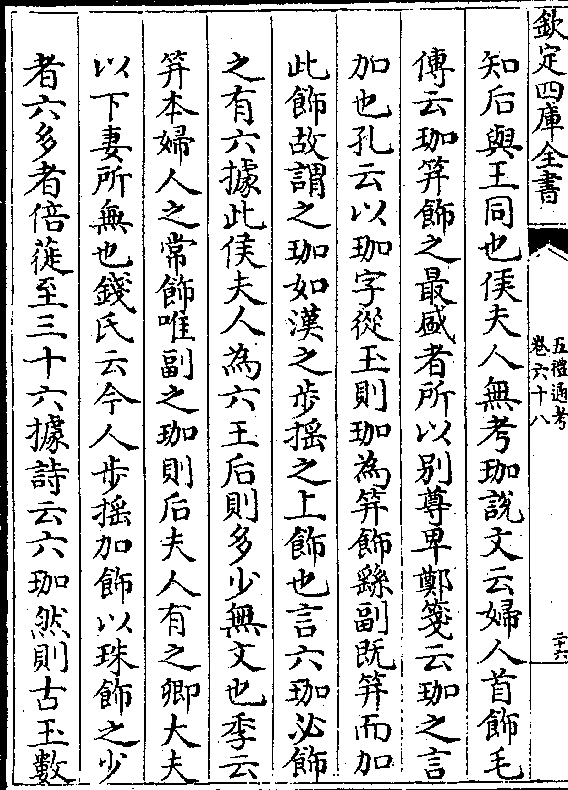 欽定四庫全書
五禮通考
卷六十八
三六
知后與王同也侯夫人無考珈說文云婦人首飾毛
傳云珈笄飾之最盛者所以别尊卑鄭箋云珈之言
加也孔云以珈字從玉則珈為笄飾繇副既笄而加
此飾故謂之珈如漢之步揺之上飾也言六珈必飾
之有六據此侯夫人為六王后則多少無文也季云
笄本婦人之常飾唯副之珈則后夫人有之卿大夫
以下妻所無也錢氏云今人步揺加飾以珠飾之少
者六多者倍蓰至三十六據詩云六珈然則古玉數